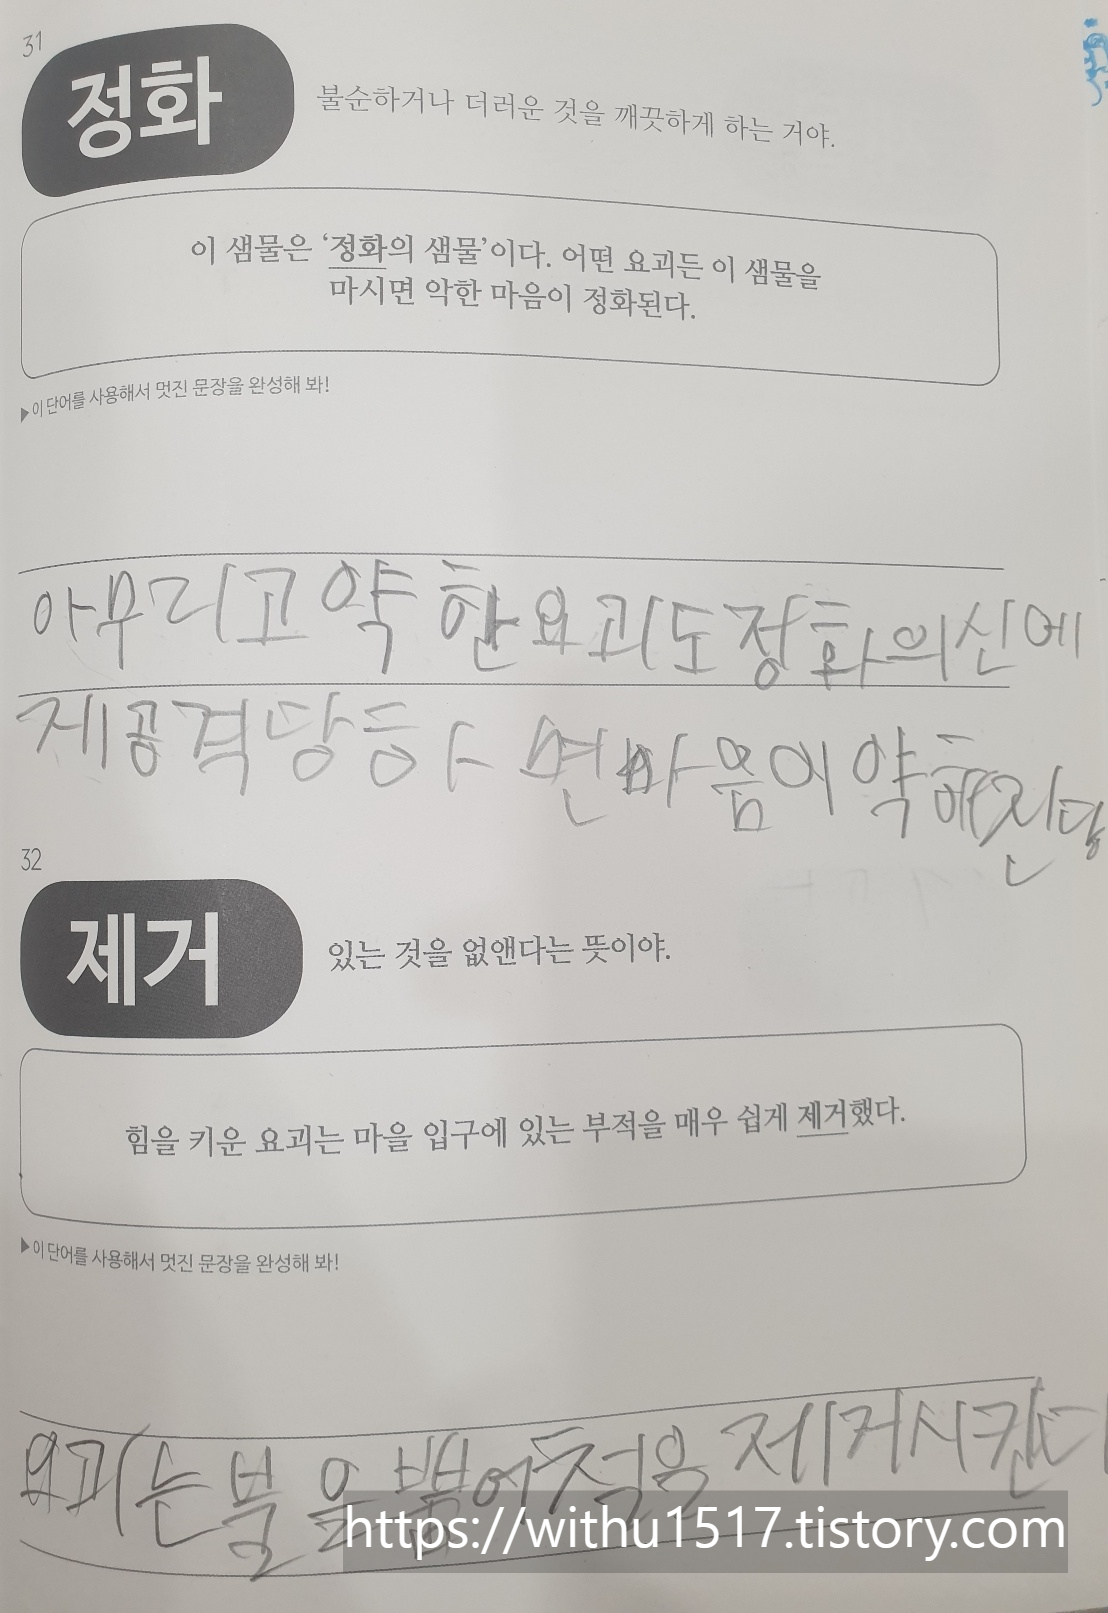 31
정화
불순하거나 더러운 것을 깨끗하게 하는 거야.
이 샘물은 ‘정화의 샘물’이다. 어떤 요괴든 이 샘물을
마시면 악한 마음이 정화된다.
▶이 단어를 사용해서 멋진 문장을 완성해 봐!
아무리고약한요괴도정화의신에
제공격당하면마음이약해진다
32
제거
있는 것을 없앤다는 뜻이야.
힘을 키운 요괴는 마을 입구에 있는 부적을 매우 쉽게 제거했다.
▶이 단어를 사용해서 멋진 문장을 완성해 봐!
요괴는불을뿜어적을제거시킨다
https://withu1517.tistory.com